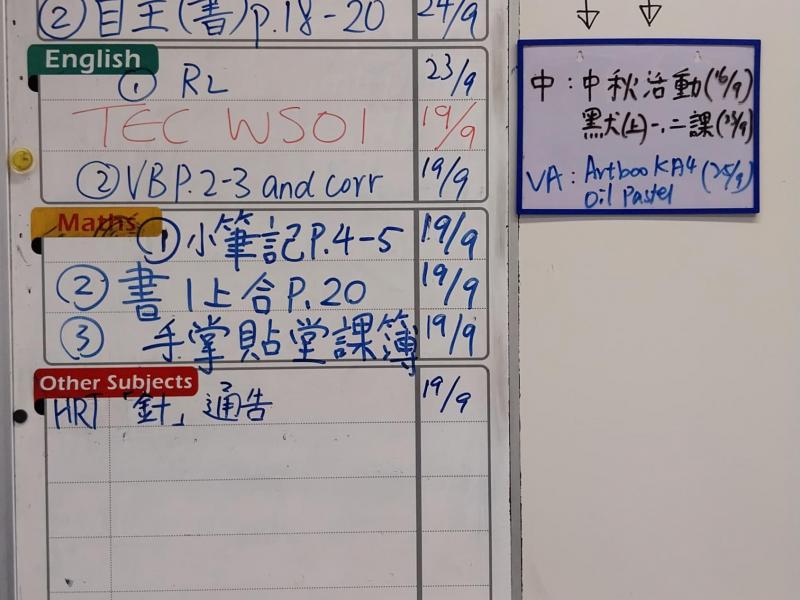 ② 自主(書)p.18-20 24/9
English
① R2 23/9
TEC WS01 19/9
② VB P.2-3 and corr 19/9
Maths
① 小筆記P.4-5 19/9
② 書 1上合P.20 19/9
③ 手掌貼堂課簿 19/9
Other Subjects
HRT 「針」通告 19/9
中：中秋活動(16/9)
黑犬(上)一.二課(23/9)
VA : Artbook A4 (25/9)
Oil Pastel